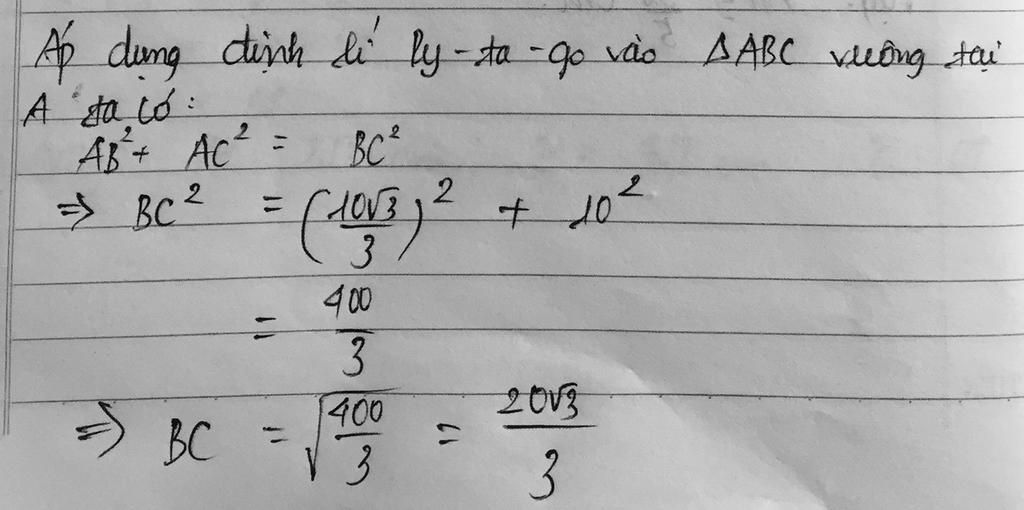 Áp dụng định lí Py-ta-go vào ΔABC vuông tại
A ta có:
AB² + AC² = BC²
⇒ BC² = (10√3/3)² + 10²
= 400/3
⇒ BC = √(400/3) = 20√3/3